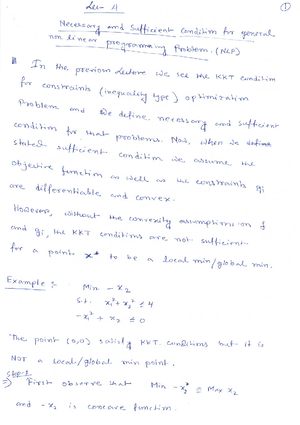 Lec- 4
①
Necessary and Sufficient Condition for general
non linear programming Problem. (NLP)
In the previous lecture we see the KKT condition
for constraints (inequality type) optimization
Problem and we define necessary and sufficient
condition for that problems. Now, when we define
stated sufficient condition we assume the
objective function as well as the constraints gi
are differentiable and convex.
However, without the convexity assumptions on f
and gi, the KKT conditions are not sufficient
for a point x* to be a local min/global min.
Example :
Min - x₂
s.t. x₁² + x₂² ≤ 4
-x₁² + x₂ ≤ 0
The point (0,0) satisfy KKT conditions but it is
NOT a local/global min point.
Step-1
⇒) First observe that Min -x₂ ≅ Max x₂
and -x₂ is concave function.